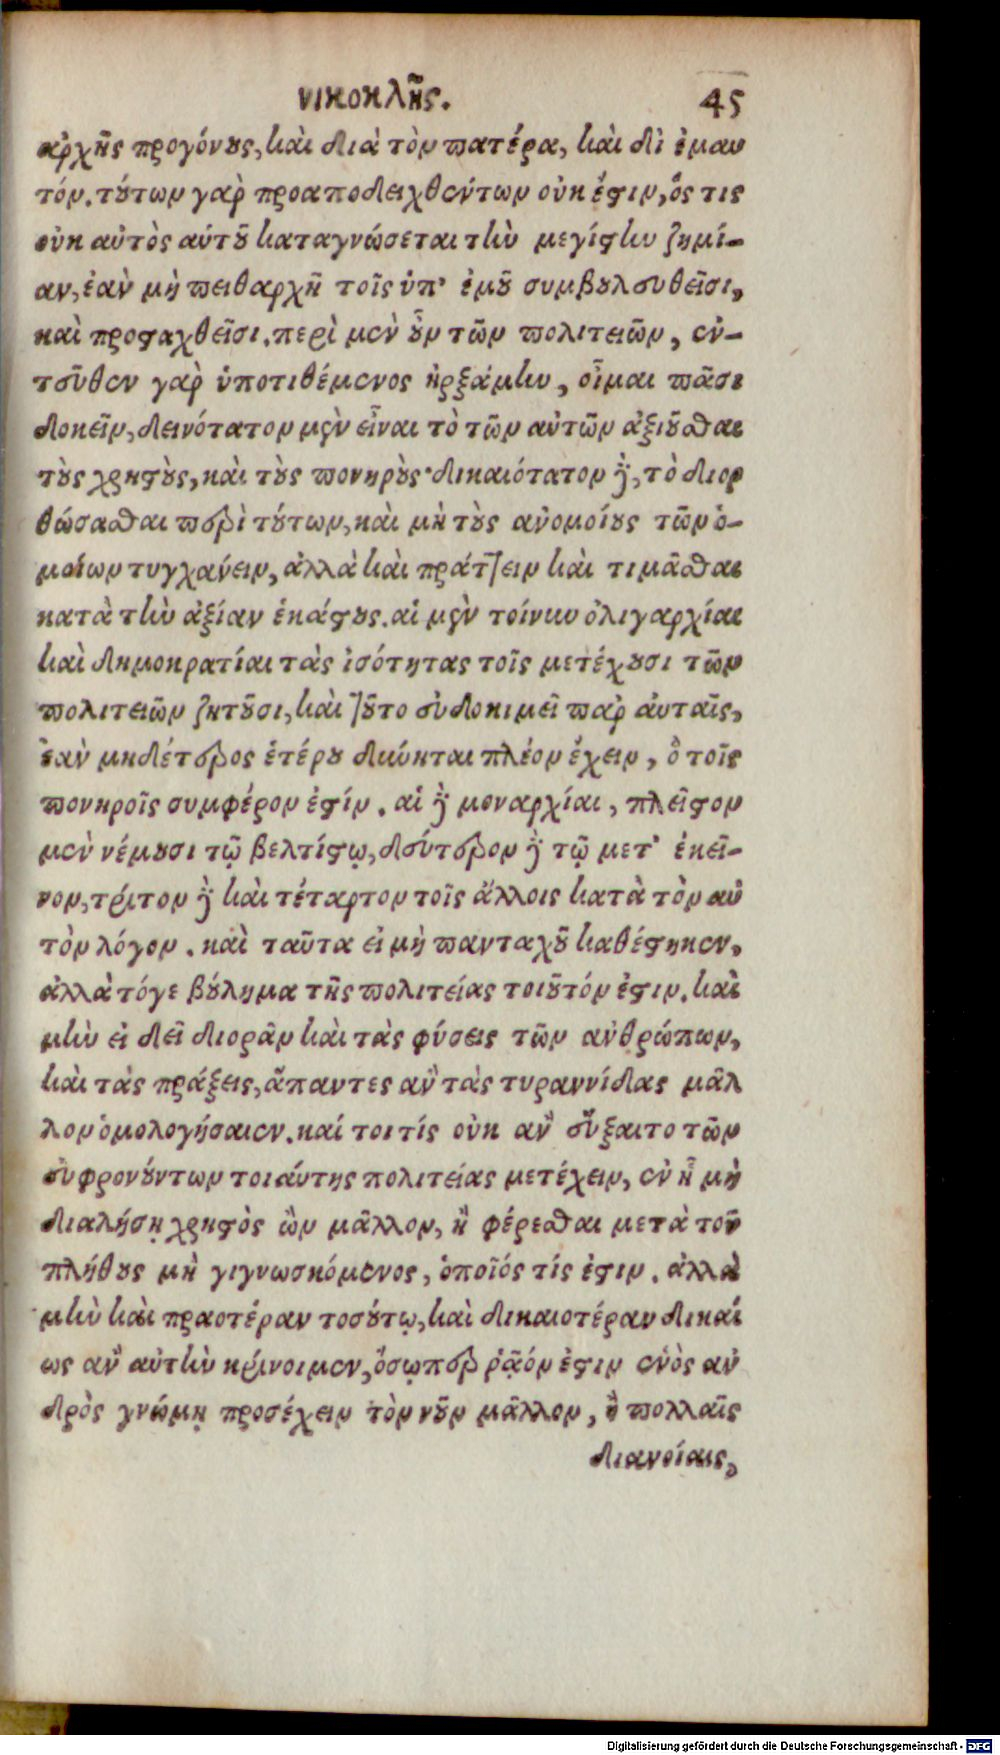 νικοκλῆς. 45
ἀρχῆς προγόνους, καὶ διὰ τὸν πατέρα, καὶ δι ἐμαυ
τόν. τούτων γὰρ προαποδειχθέντων οὐκ ἔστιν, ὅς τις
οὐκ αὐτὸς αὑτοῦ καταγνώσεται τὴν μεγίστην ζημί-
αν, ἐὰν μὴ πειθαρχῇ τοῖς ὑπ' ἐμοῦ συμβουλευθεῖσι,
καὶ προσταχθεῖσι. περὶ μὲν οὖν τῶν πολιτειῶν, ἐν-
τεῦθεν γὰρ ὑποτιθέμενος ἠρξάμην, οἶμαι πᾶσι
δοκεῖν, δεινότατον μὲν εἶναι τὸ τῶν αὐτῶν ἀξιοῦσθαι
τοὺς χρηστοὺς, καὶ τοὺς πονηρούς· δικαιότατον δὲ, τὸ διορ
θώσασθαι περὶ τούτων, καὶ μὴ τοὺς ἀνομοίους τῶν ὁ-
μοίων τυγχάνειν, ἀλλὰ καὶ πράττειν καὶ τιμᾶσθαι
κατὰ τὴν ἀξίαν ἑκάστους. αἱ μὲν τοίνυν ὀλιγαρχίαι
καὶ δημοκρατίαι τὰς ἰσότητας τοῖς μετέχουσι τῶν
πολιτειῶν ζητοῦσι, καὶ τοῦτο εὐδοκιμεῖ παρ αὐταῖς,
ἐὰν μηδέτερος ἑτέρου δύνηται πλέον ἔχειν, ὃ τοῖς
πονηροῖς συμφέρον ἐστίν. αἱ δὲ μοναρχίαι, πλεῖστον
μὲν νέμουσι τῷ βελτίστῳ, δεύτερον δὲ τῷ μετ' ἐκεῖ-
νον, τρίτον δὲ καὶ τέταρτον τοῖς ἄλλοις κατὰ τὸν αὐ
τὸν λόγον. καὶ ταῦτα εἰ μὴ πανταχοῦ καθέστηκεν,
ἀλλὰ τόγε βούλημα τῆς πολιτείας τοιοῦτόν ἐστιν. καὶ
μὴν εἰ δεῖ διορᾶν καὶ τὰς φύσεις τῶν ἀνθρώπων,
καὶ τὰς πράξεις, ἅπαντες ἂν τὰς τυραννίδας μᾶλ
λον ὁμολογήσαιεν. καί τοι τίς οὐκ ἂν εὔξαιτο τῶν
εὐφρονούντων τοιαύτης πολιτείας μετέχειν, ἐν ᾗ μὴ
διαλήσῃ χρηστὸς ὢν μᾶλλον, ἢ φέρεσθαι μετὰ τοῦ
πλήθους μὴ γιγνωσκόμενος, ὁποῖός τίς ἐστιν. ἀλλὰ
μὴν καὶ πραοτέραν τοσούτῳ, καὶ δικαιοτέραν δικαί
ως ἂν αὐτὴν κρίνοιμεν, ὅσῳπερ ῥᾷόν ἐστιν ἑνὸς ἀν
δρὸς γνώμῃ προσέχειν τὸν νοῦν μᾶλλον, ἢ πολλαῖς
διανοίαις,
Digitalisierung gefördert durch die Deutsche Forschungsgemeinschaft - DFG